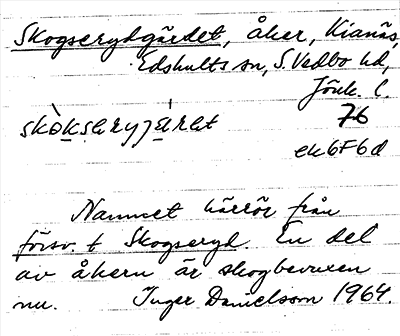 Skogserydgärdet, åker, Kianäs,
Edshults sn, S. Vedbo hd,
Jönk. l.
76
ek6F6d
Namnet härrör från
försv. t Skogseryd. En del
av åkern är skogbevuxen
nu. Inger Danielsson 1964